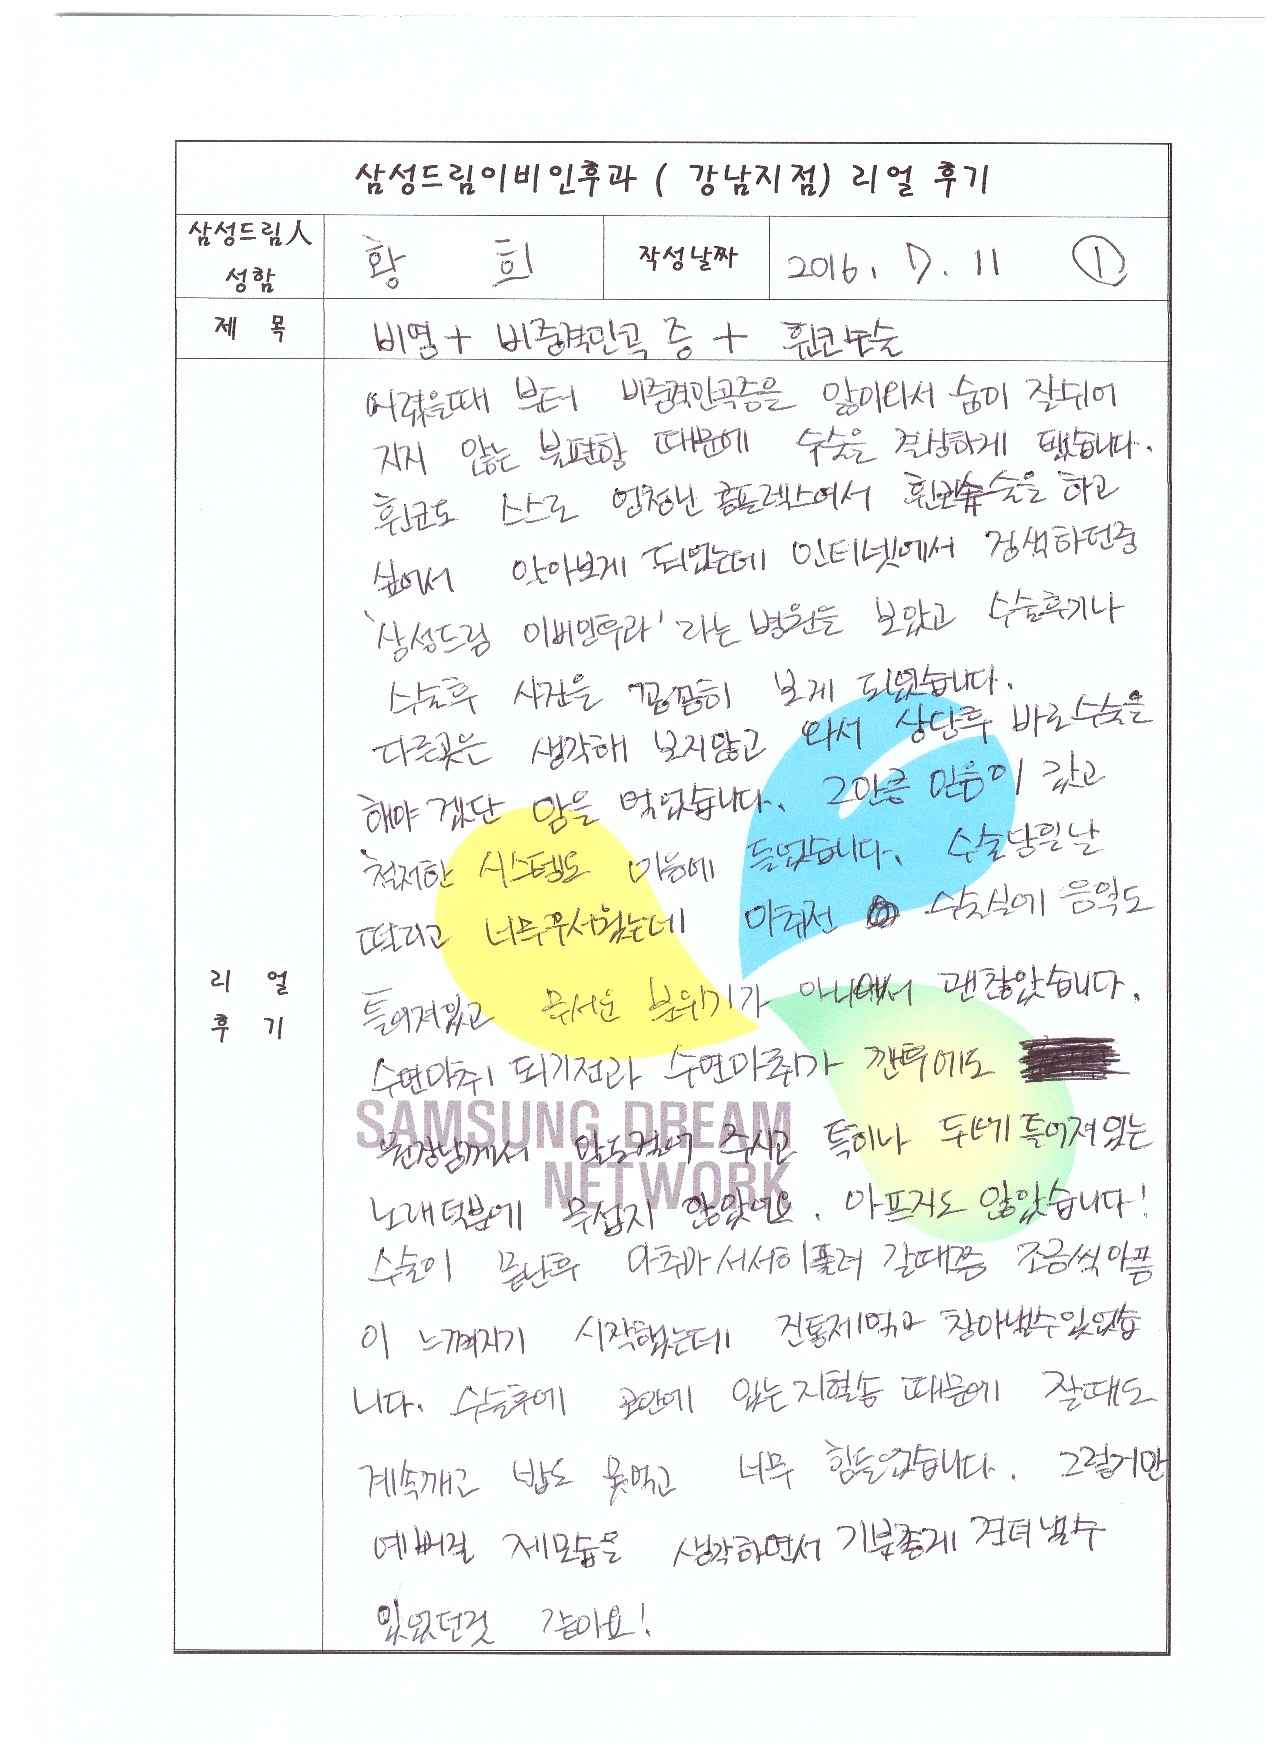 삼성드림이비인후과 ( 강남지점) 리얼 후기
삼성드림人 성함
황 희
작성날짜
2016. 7. 11 ①
제 목
비염 + 비중격만곡증 + 휜코수술
어렸을때 부터 비중격만곡증을 앓아와서 숨이 잘쉬어
지지 않는 불편함 때문에 수술을 결심하게 됐습니다.
휜코도 스스로 엄청난 콤플렉스여서 휜코수술을 하고
싶어서 알아보게 되었는데 인터넷에서 검색하던중
'삼성드림 이비인후과' 라는 병원을 보았고 수술후기나
수술후 사진을 꼼꼼히 보게 되었습니다.
다른곳은 생각해 보지않고 와서 상담후 바로수술을
해야 겠단 맘을 먹었습니다. 그만큼 믿음이 갔고
철저한 시스템도 마음에 들었습니다. 수술당일날
떨리고 너무무서웠는데 마취전 수술실에 음악도
틀어져있고 무서운 분위기가 아니여서 괜찮았습니다.
수면마취 되기전과 수면마취가 깬후에도
원장님께서 말도걸어 주시고 특히나 두번째 틀어져있는
노래덕분에 무섭지 않았어요. 아프지도 않았습니다!
수술이 끝난후 마취가 서서히풀려 갈때쯤 조금씩아픔
이 느껴지기 시작했는데 진통제먹고 참아낼수있었습
니다. 수술후에 코안에 있는지혈솜 때문에 잘때도
계속깨고 밥도 못먹고 너무 힘들었습니다. 그렇지만
예뻐질 제모습을 생각하면서 기분좋게 견뎌낼수
있었던것 같아요!
리 얼
후 기
SAMSUNG DREAM
NETWORK